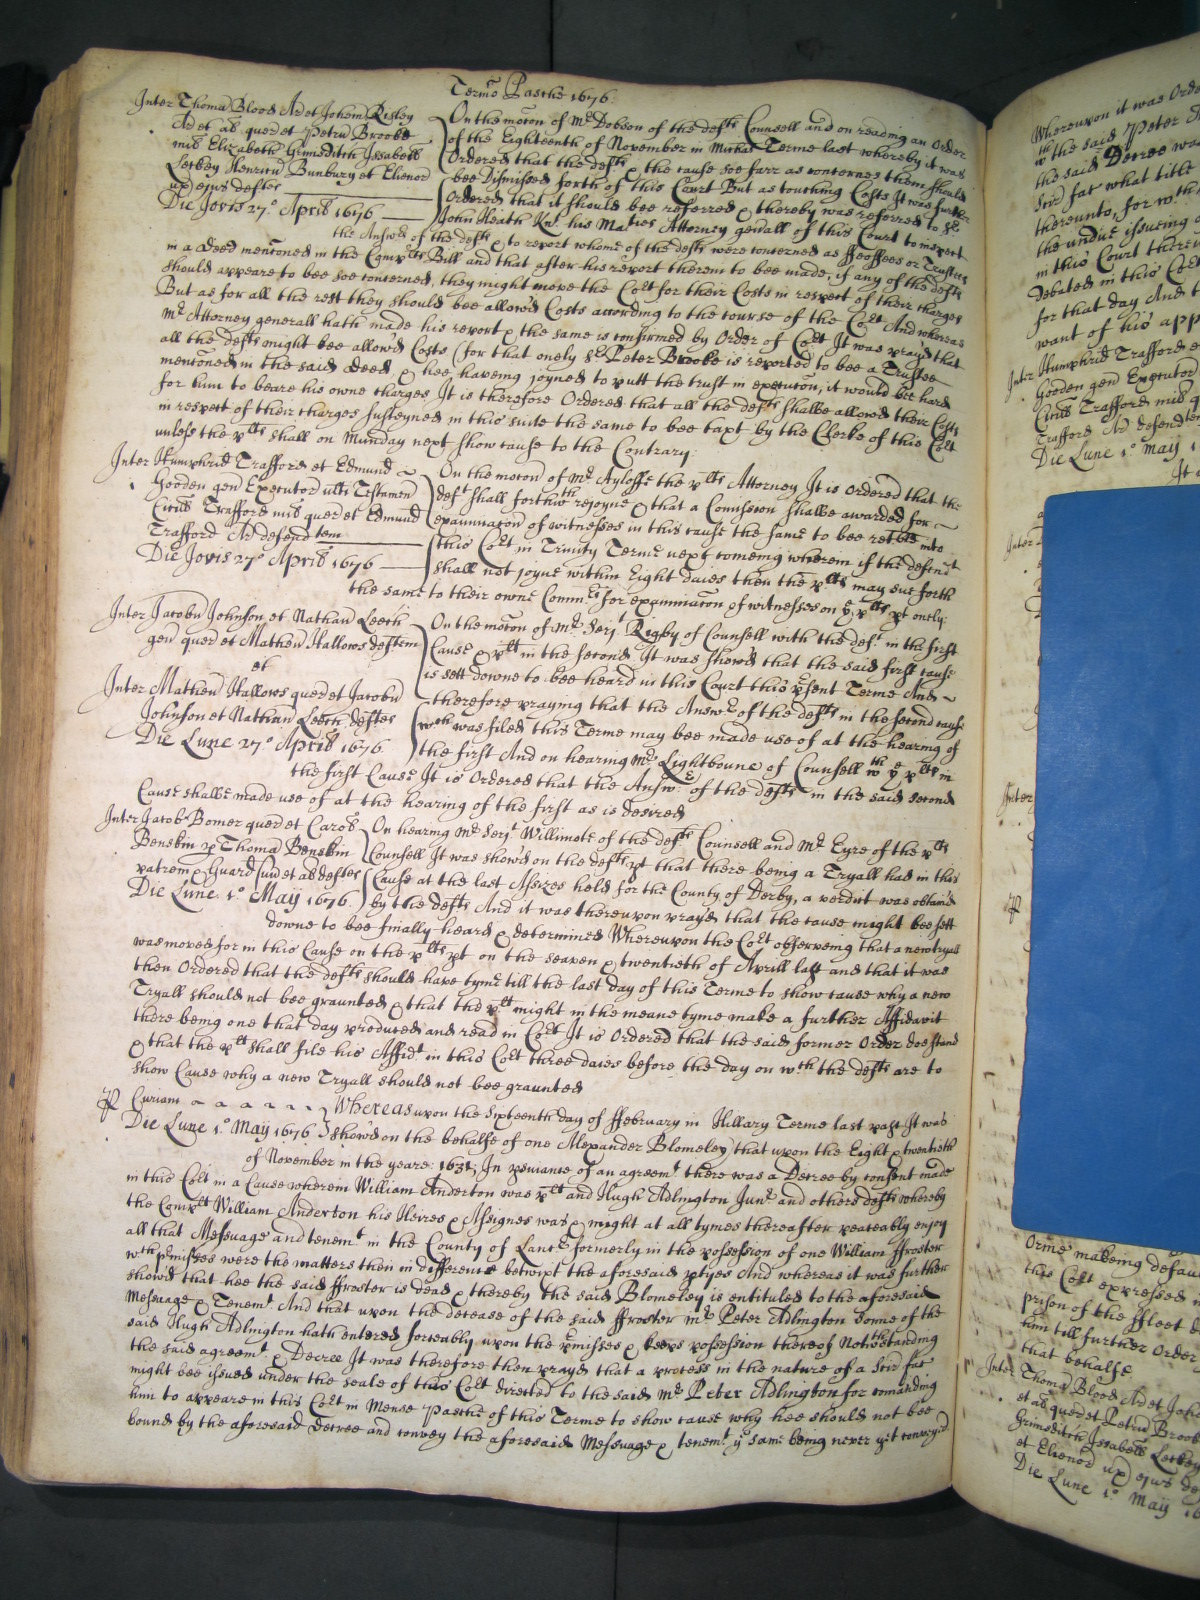 Termo Pasche 1676
Inter Thomā Blood Ar et Johem Risley
Ar et al quer et Petrū Brooke
mil Elizabeth Grimeditch Issabell
Leckey Henricū Bunbury et Elienor
ux ejus deftes
Die Jovis 27o Aprill 1676
On the mocon of Mr Dobson of the defts Counsell and on reading an Order
of the Eighteenth of November in Michas Terme last whereby it was
Ordered that the defts & the cause soe farr as concernes them should
bee Dismissed forth of this Court But as touching Costs It was further
Ordered that it should bee referred & thereby was referred to Sr
John Heath Knt his Maties Attorney genall of this Court to inspect
the Answrs of the defts & to report whome of the defts were concerned as ffeoffees or Trustees
in a deed mencōned in the Complts Bill and that after his report therein to bee made, if any of the defts
should appeare to bee soe concerned, they might move the Cort for their Costs in respect of their charges
But as for all the rest they should bee allowd Costs according to the course of the Cort And whereas
Mr Attorney generall hath made his report & the same is confirmed by Order of Cort It was prayd that
all the defts might bee allowd Costs (for that onely Sr Peter Brooke is reported to bee a Trustee
mencōned in the said deed, & hee haveing joyned to putt the trust in execucon, it would bee hard
for him to beare his owne charges It is therefore Ordered that all the defts shalbe allowed their Costs
in respect of their charges susteyned in this suite the same to bee taxt by the Clerke of this Cort
unless the plts shall on Munday next show cause to the Contrary
Inter Humphrid Trafford et Edmund
Gooden gen Executor ulti Testamen
Cecilie Trafford mil quer et Edmund
Trafford Ar defendtem
Die Jovis 27o Aprill 1676
On the mocon of Mr Ayloffe the plts Attorney It is Ordered that the
deft shall forthwth rejoyne & that a Comission shalbe awarded for
examinacon of witnesses in this cause the same to bee retble into
this Cort in Trinity Terme next comeing wherein if the defendt
shall not joyne within Eight daies then the plts may sue forth
the same to their owne Commrs for examinacon of witnesses on ye plts pt onely
Inter Jacobū Johnson et Nathan Leech
gen quer et Matheū Hallows deftem
et
Inter Matheū Hallows quer et Jacobū
Johnson et Nathan Leech deftes
Die Lune 27o Aprill 1676
On the mocon of Mr Serjt Rigby of Counsell with the deft in the first
Cause & plt in the second It was showd that the said first cause
is sett downe to bee heard in this Court this psent Terme And
therefore praying that the Answr of the defts in the second cause
wch was filed this Terme may bee made use of at the hearing of
the first And on hearing Mr Lightboune of Counsell wth ye plts in
the first Cause It is Ordered that the Answr of the defts in the said second
Cause shalbe made use of at the hearing of the first as is desired
Inter Jacob Bomer quer et Carol
Benskin p Thoma Benskin
patrem & Guard suū et al deftes
Die Lune 1o May 1676
On hearing Mr Serjt Willimott of the defts Counsell and Mr Eyre of the plts
Counsell It was showd on the defts pt that there being a Tryall had in this
Cause at the last Assizes held for the County of Derby, a verdict was obtaind
by the defts And it was thereupon prayd that the cause might bee sett
downe to bee finally heard & determined Whereupon the Cort observeing that a new tryall
was moved for in this Cause on the plts pt on the seaven & twentieth of Aprill last and that it was
then Ordered that the defts should have tyme till the last day of this Terme to show cause why a new
Tryall should not bee graunted & that the plt might in the meane tyme make a further Affidavit
there being one that day produced and read in Cort It is Ordered that the said former Order doe stand
& that the plt shall file his Affidt in this Cort three daies before the day on wch the defts are to
show Cause why a new Tryall should not bee graunted
P Curiam
Die Lune 1o May 1676
Whereas upon the Sixteenth day of ffebruary in Hillary Terme last past It was
showd on the behalfe of one Alexander Blomeley that upon the Eight & twentieth
of November in the yeare: 1631; In psuance of an agreemt there was a Decree by consent made
in this Cort in a Cause wherein William Anderton was plt and Hugh Adlington Junr and others defts whereby
the Complt William Anderton his Heires & Assignes was & might at all tymes thereafter peaceably enjoy
all that Messuage and tenemt in the County of Lancr formerly in the possession of one William ffroster
wch pmisses were the matters then in difference betwixt the aforesaid ptyes And whereas it was further
showd that hee the said ffroster is dead & thereby the said Blomeley is entituled to the aforesaid
Messuage & Tenemt And that upon the decease of the said ffroster Mr Peter Adlington sonne of the
said Hugh Adlington hath entered forceably upon the pmisses & keeps possession thereof Notwthstanding
the said agreemt & Decree It was therefore then prayd that a process in the nature of a Scir fac
might bee issued under the seale of this Cort directed to the said Mr Peter Adlington for comanding
him to appeare in this Cort in Mense Pasche of this Terme to show cause why hee should not bee
bound by the aforesaid Decree and convey the aforesaid Messuage & tenemt ye same being never yet conveyd
Whereupon it was Orde
wth the said Peter A
the said Decree wa
Scir fac what title
thereunto, for wch
the undue issueing o
in this Court therei
Debated in this Cort
for that day And t
want of his app
Inter Humphrid Trafford e
Gooden gen Executor
Cecilie Trafford mil q
Trafford Ar defendtem
Die Lune 1o May 1
It
Inter
Inter
P
Orme makeing defau
this Cort expressed i
prison of the ffleet
him till further Order
that behalfe
Inter Thomā Blood Ar et Joh
et al quer et Petrū Brook
Grimeditch Issabell Leckey
et Elienor ux ejus de
Die Lune 1o May 16